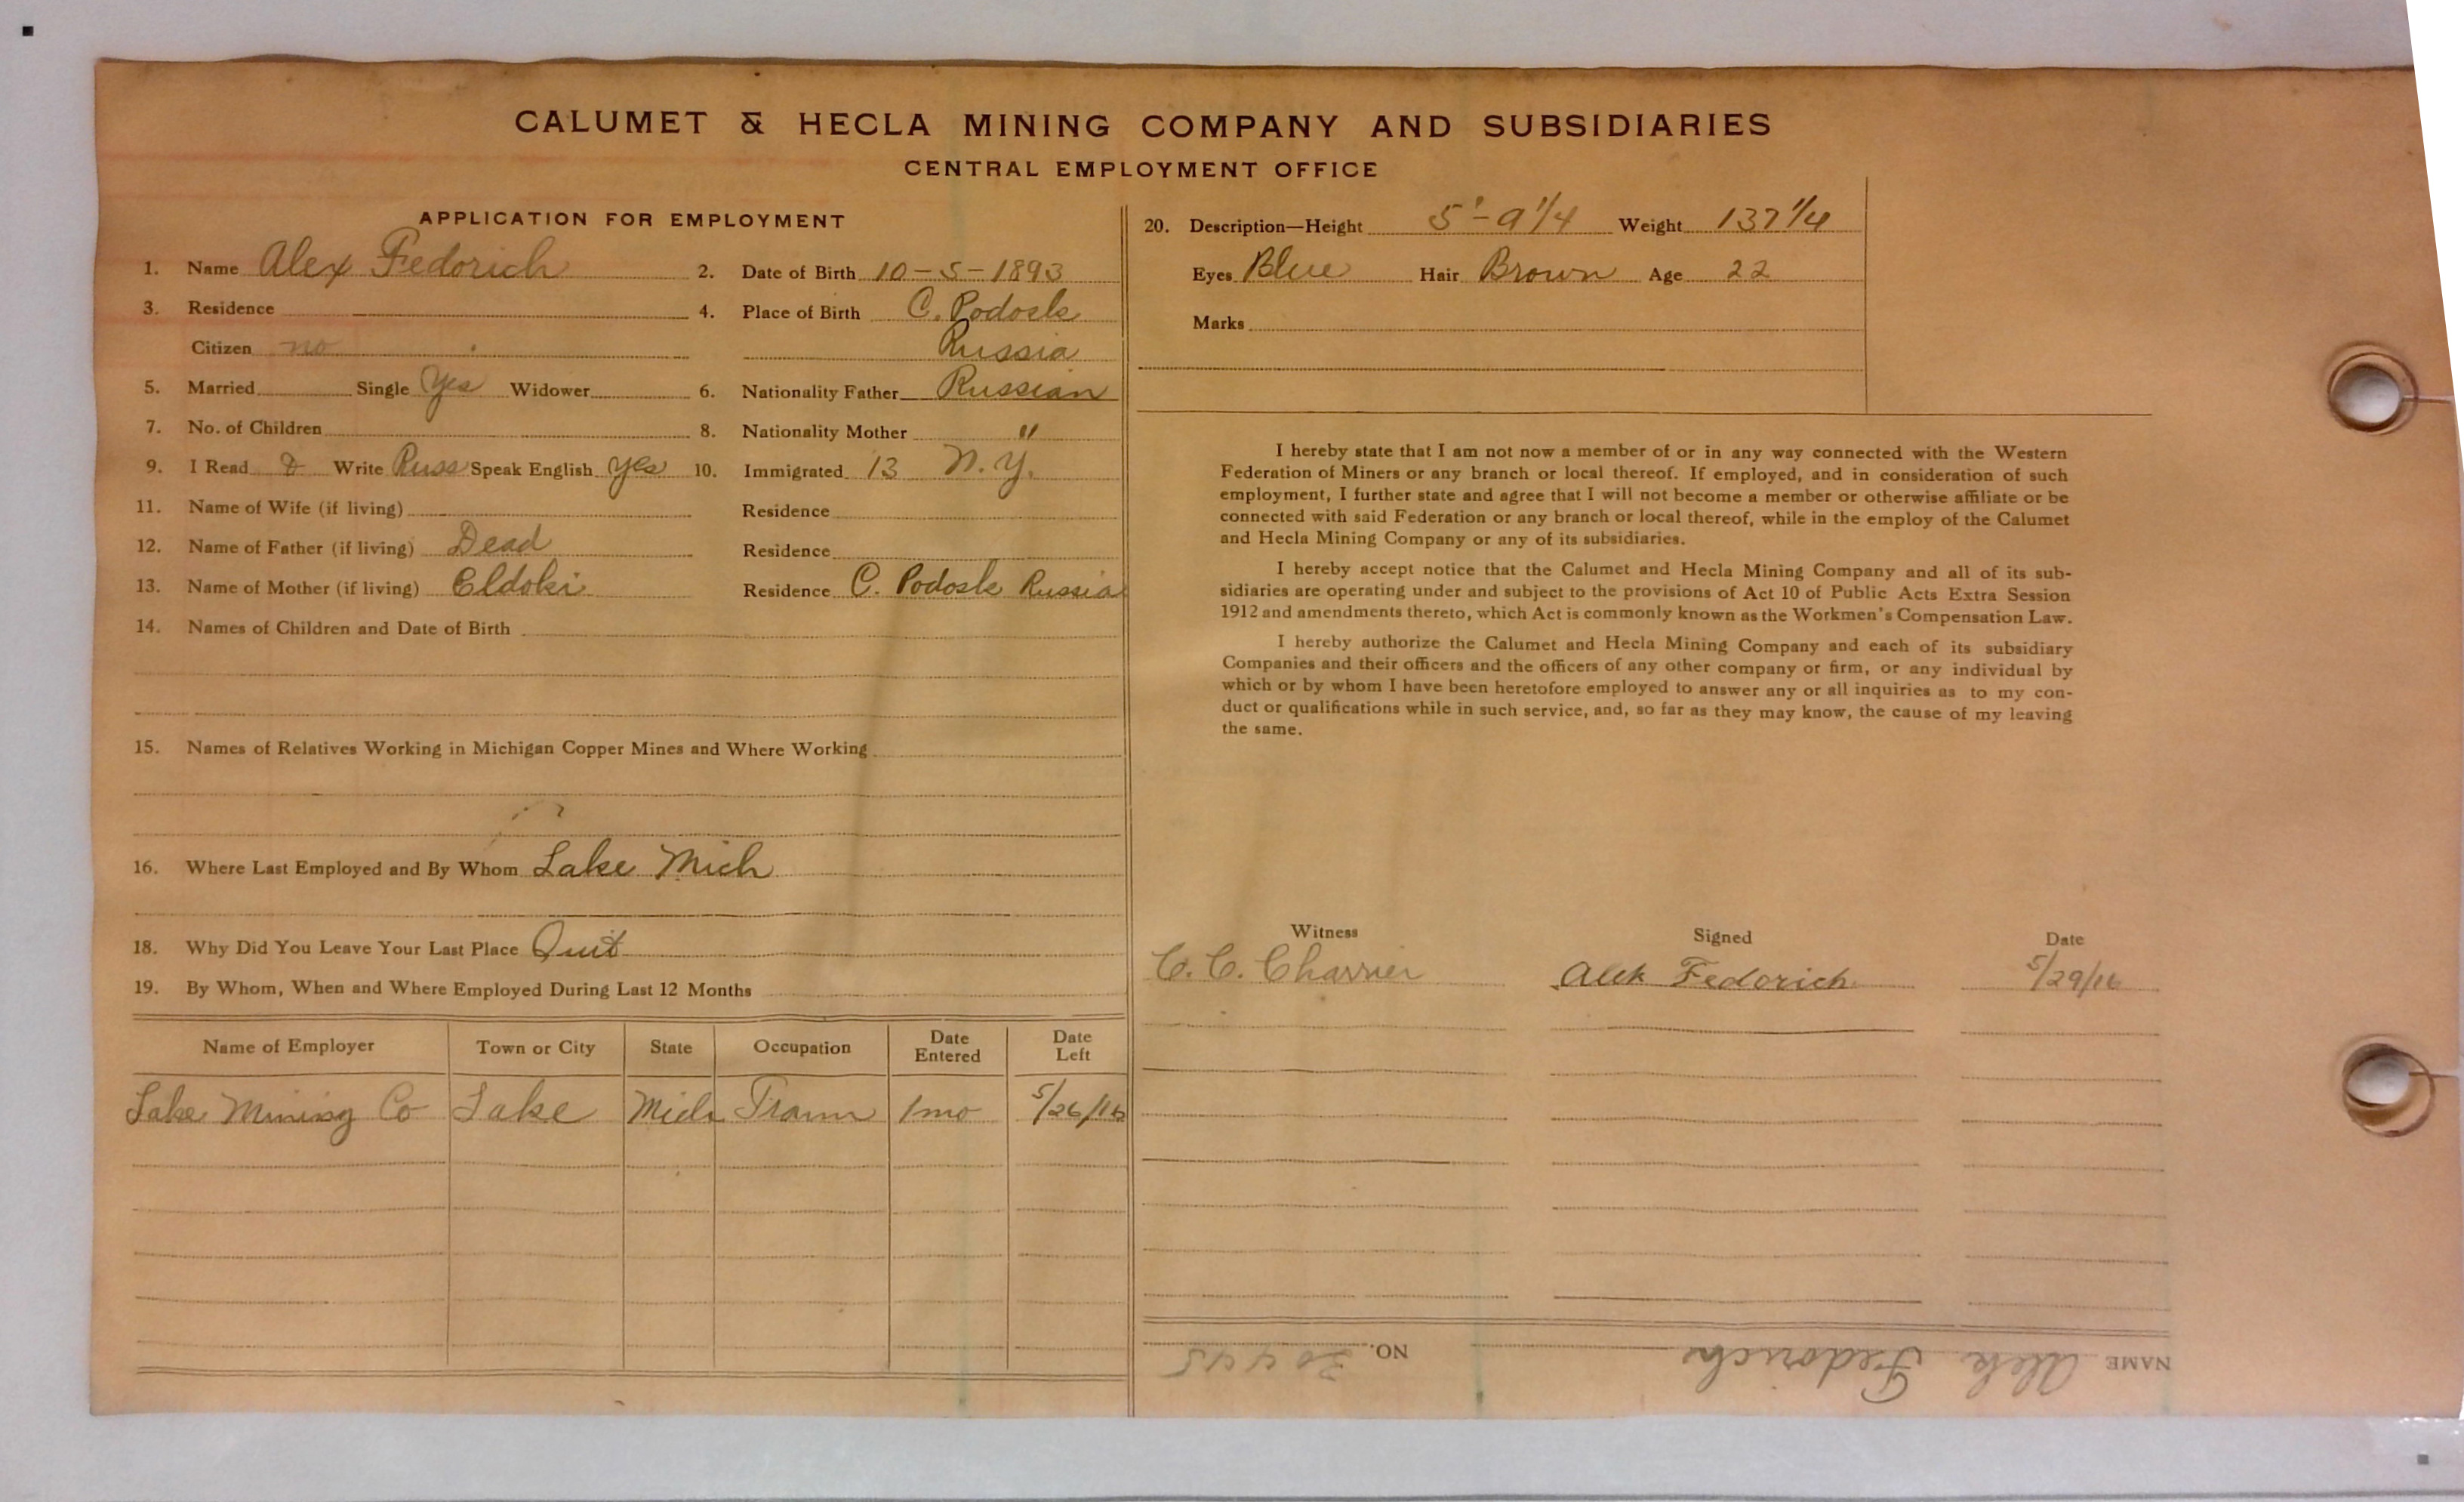 CALUMET & HECLA MINING COMPANY AND SUBSIDIARIES
CENTRAL EMPLOYMENT OFFICE
APPLICATION FOR EMPLOYMENT
1. Name Alex Fedorich 2. Date of Birth 10-5-1893
3. Residence 4. Place of Birth C. Podosk
Citizen no Russia
5. Married Single Yes Widower 6. Nationality Father Russian
7. No. of Children 8. Nationality Mother "
9. I Read & Write Russ Speak English Yes 10. Immigrated 13 N.Y.
11. Name of Wife (if living) Residence
12. Name of Father (if living) Dead Residence
13. Name of Mother (if living) Eldoki Residence C. Podosk Russia
14. Names of Children and Date of Birth
15. Names of Relatives Working in Michigan Copper Mines and Where Working
16. Where Last Employed and By Whom Lake Mich
18. Why Did You Leave Your Last Place Quit
19. By Whom, When and Where Employed During Last 12 Months
Name of Employer Town or City State Occupation Date Entered Date Left
Lake Mining Co Lake Mich Tram 1mo 5/26/16
20. Description—Height 5'-9 1/4 Weight 137 1/4
Eyes Blue Hair Brown Age 22
Marks
I hereby state that I am not now a member of or in any way connected with the Western
Federation of Miners or any branch or local thereof. If employed, and in consideration of such
employment, I further state and agree that I will not become a member or otherwise affiliate or be
connected with said Federation or any branch or local thereof, while in the employ of the Calumet
and Hecla Mining Company or any of its subsidiaries.
I hereby accept notice that the Calumet and Hecla Mining Company and all of its sub-
sidiaries are operating under and subject to the provisions of Act 10 of Public Acts Extra Session
1912 and amendments thereto, which Act is commonly known as the Workmen's Compensation Law.
I hereby authorize the Calumet and Hecla Mining Company and each of its subsidiary
Companies and their officers and the officers of any other company or firm, or any individual by
which or by whom I have been heretofore employed to answer any or all inquiries as to my con-
duct or qualifications while in such service, and, so far as they may know, the cause of my leaving
the same.
Witness Signed Date
C. C. Charrier Alek Fedorich 5/29/16
NAME Alek Fedorich NO. 30445